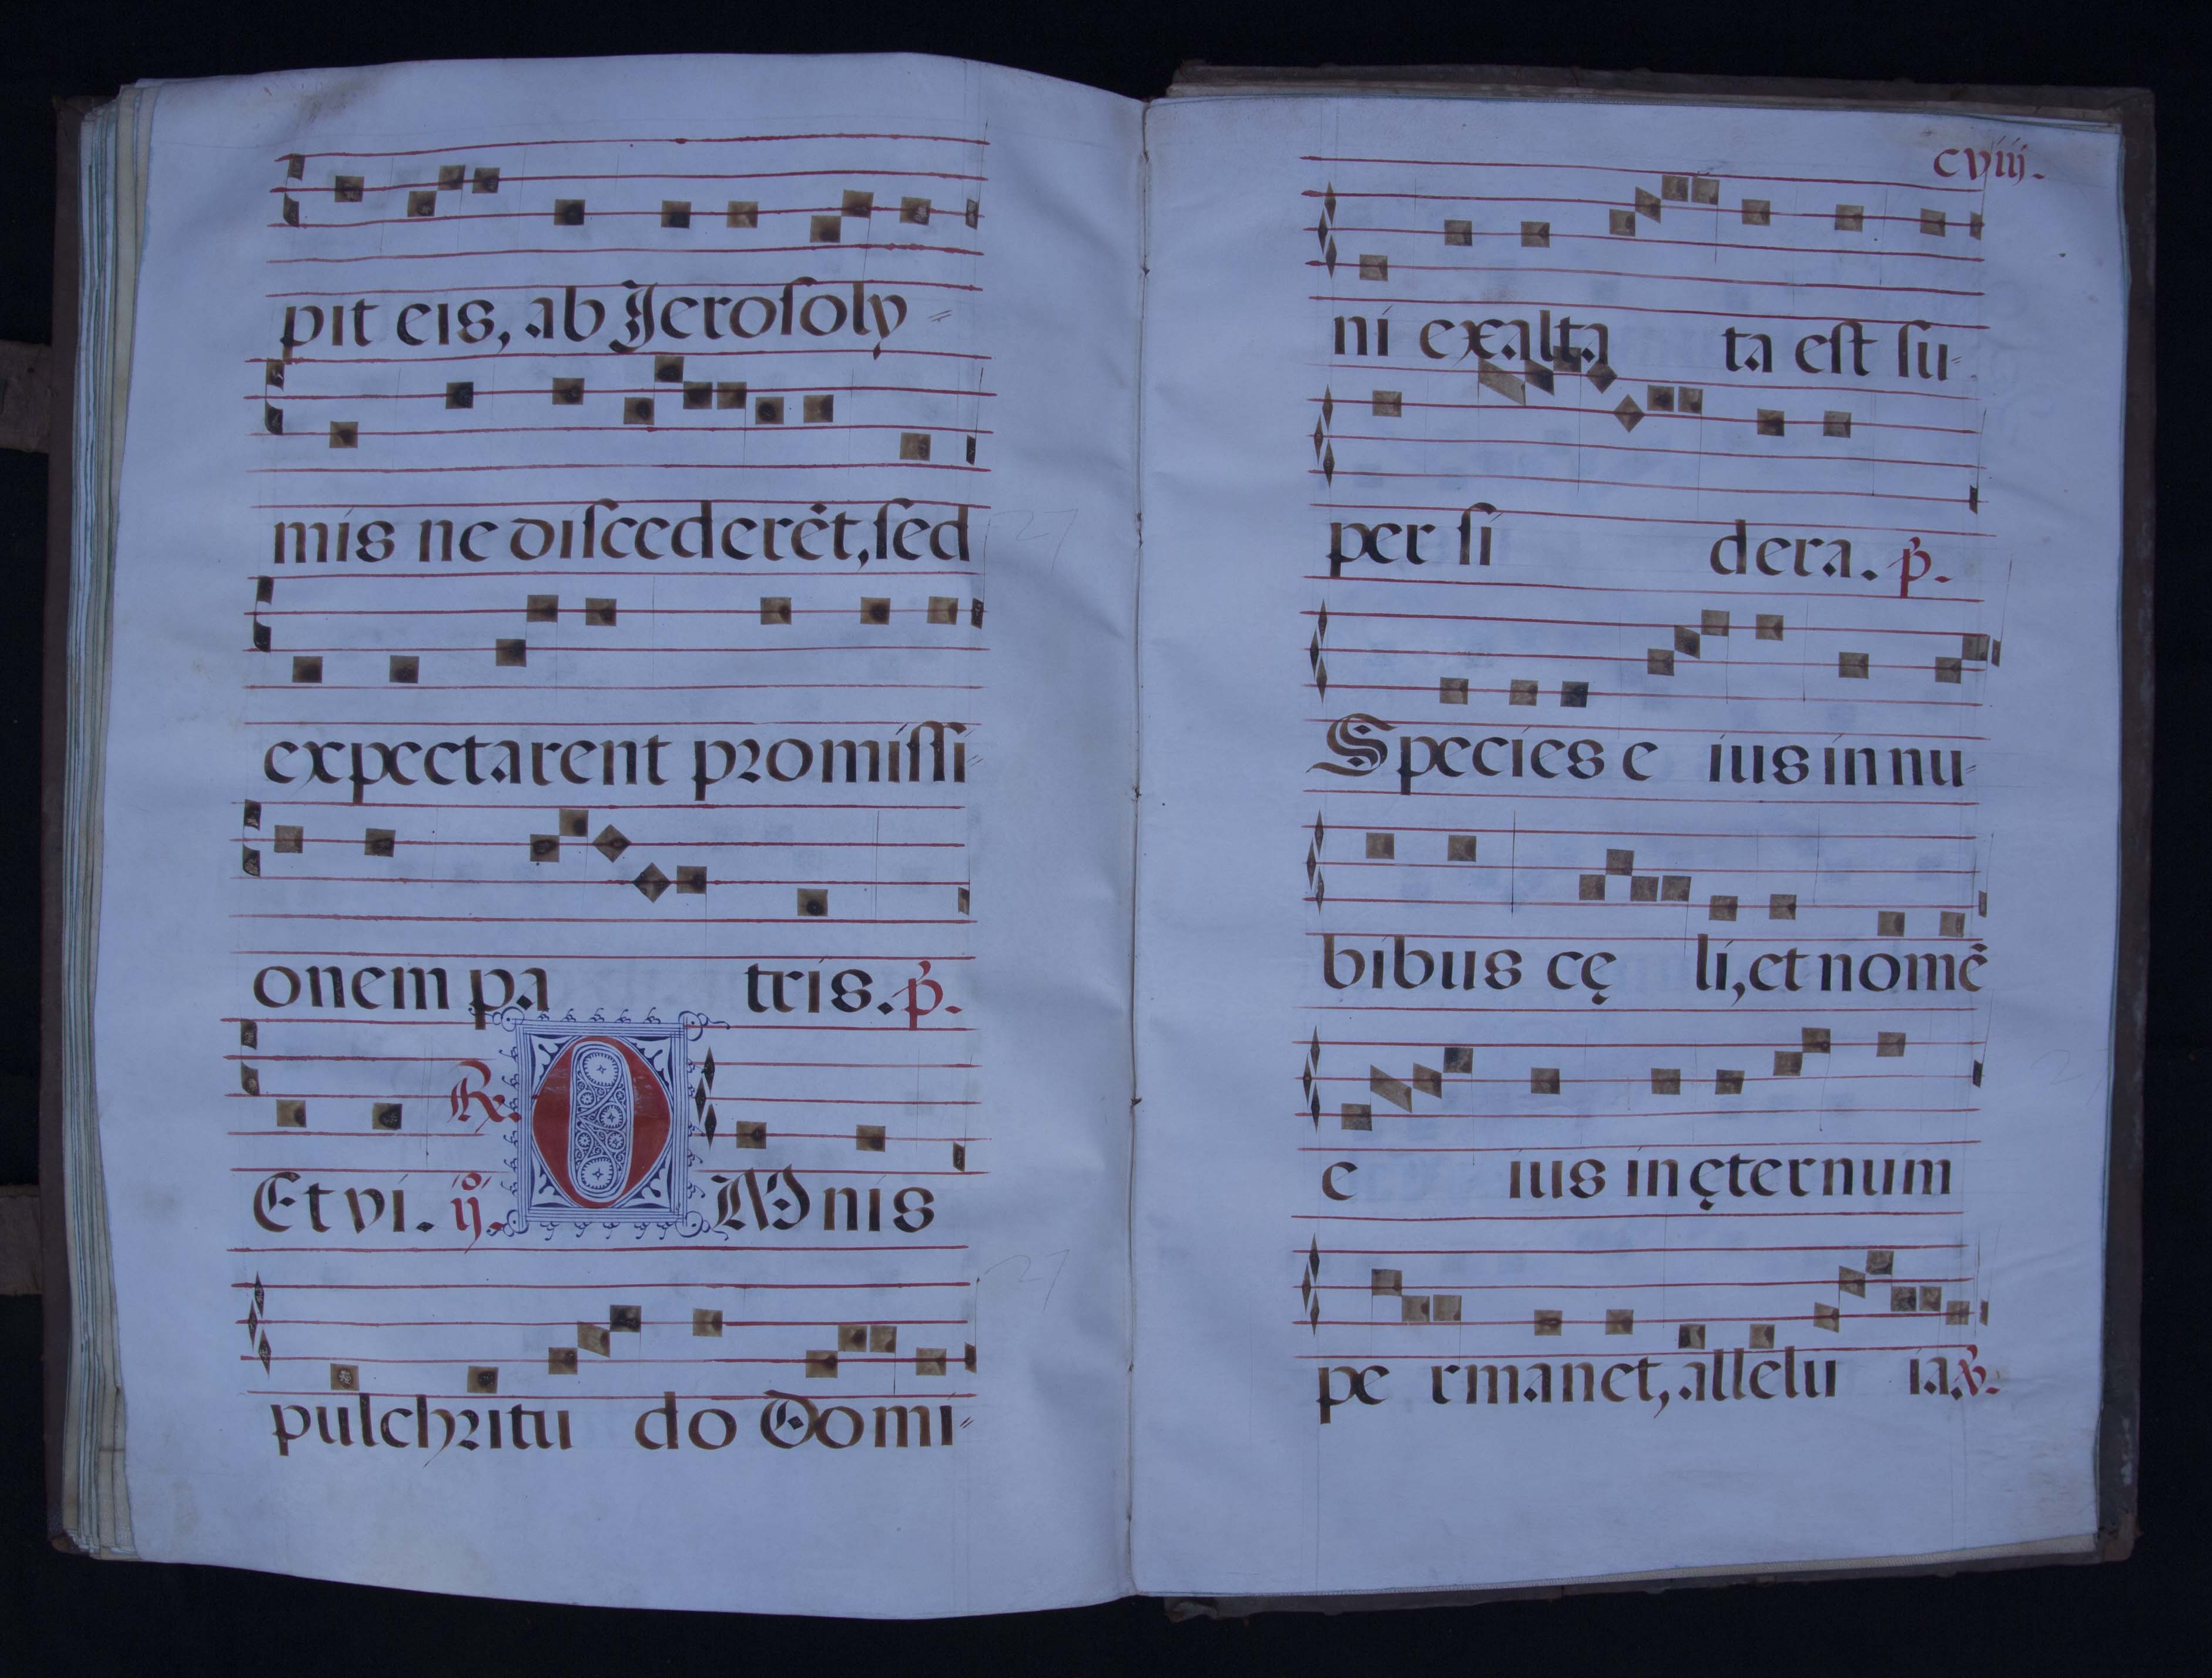 pit eis, ab Jeroſoly=
mis ne diſcederēt, ſed
expectarent promiſſi=
onem pa tris. p̄.
Et vi. ijº. R. OMnis
pulchritu do Domi=
cviij.
ni exalta ta eſt ſu=
per ſi dera. p̄.
Species e ius in nu=
bibus cę li, et nomē
e ius in ęternum
pe rmanet, allelu ia. ℣.